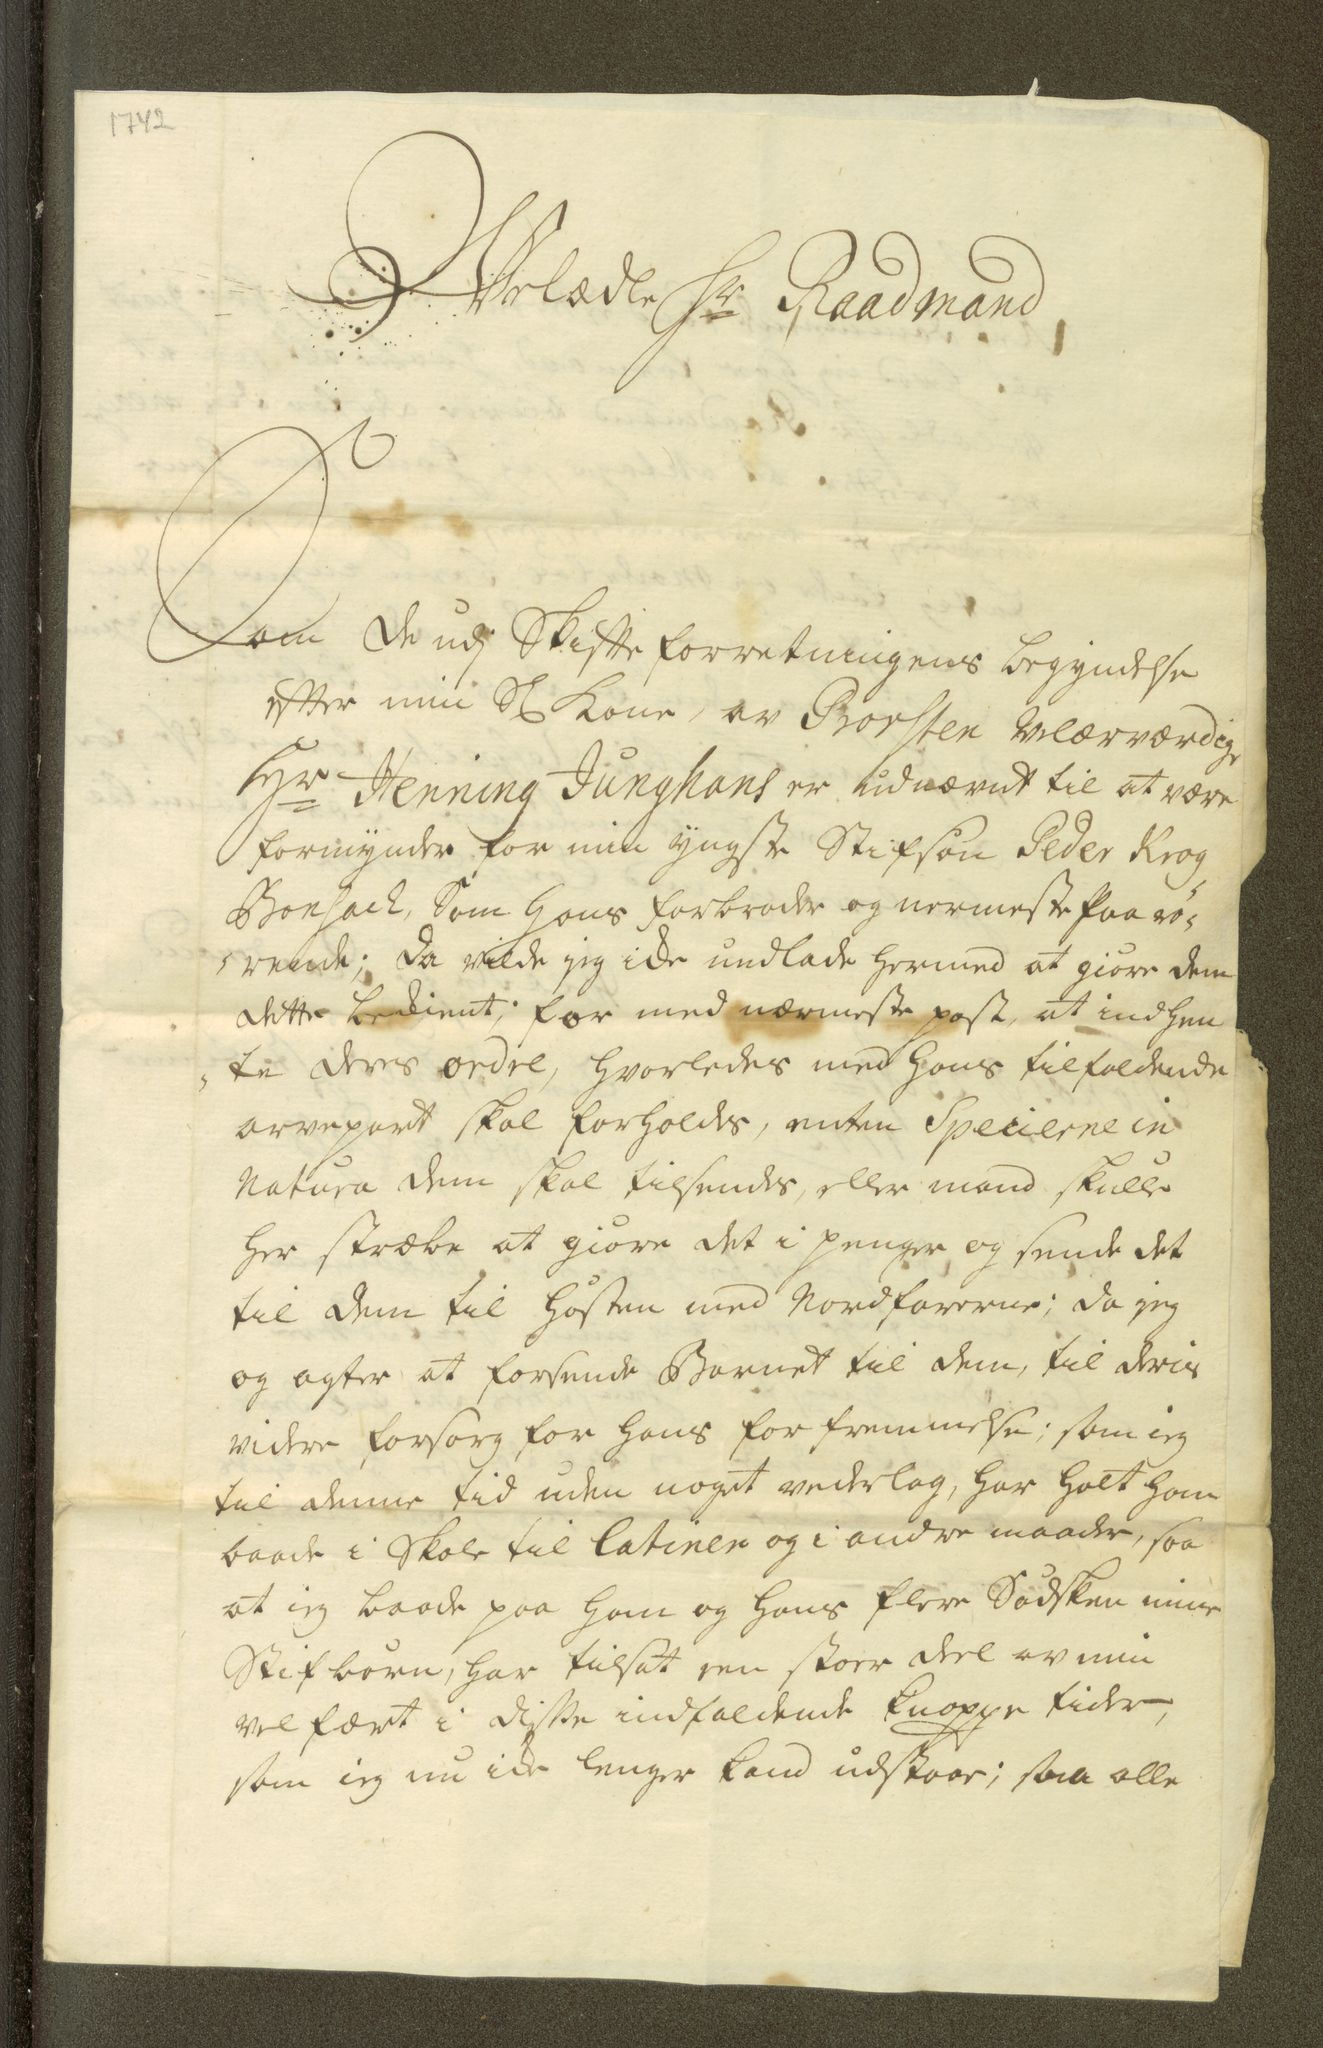 1742
Velædle Hr Raadmand
Som De udj Skifte forretningens begyndelse
efter min Sl Kone, av Prousten Velærværdige
Hr Henning Junghans er udnævnt til at være
formynder for min yngste Stifsøn Peder Krog
Bonsach, Som hans farbroder og nermeste Paarø-
-rende; da vilde jeg icke undlade hermed at giøre dem
dette bekient; for med nærmeste post, at indhen
-te deres ordre, hvorledes med hans tilfaldende
arvepart skal forholdes, enten Specierne in
Natura dem skal tilsendes, eller mand skulle
her stræbe at giøre det i penger og sende det
til dem til høsten med Nordfarerne; da jeg
og agter at forsende Barnet til dem, til deris
videre forsorg for hans forfremmelse; som ieg
til denne tid uden noget vederlag, har holt ham
baade i Skole til latinen og i andre maader, saa
at ieg baade paa ham og hans flere Sødsken mine
Stifbørn, har tilsat een stoer deel av min
velfært i disse indfaldende knappe tider,
som ieg nu icke lenger kand udstaae; saa alle